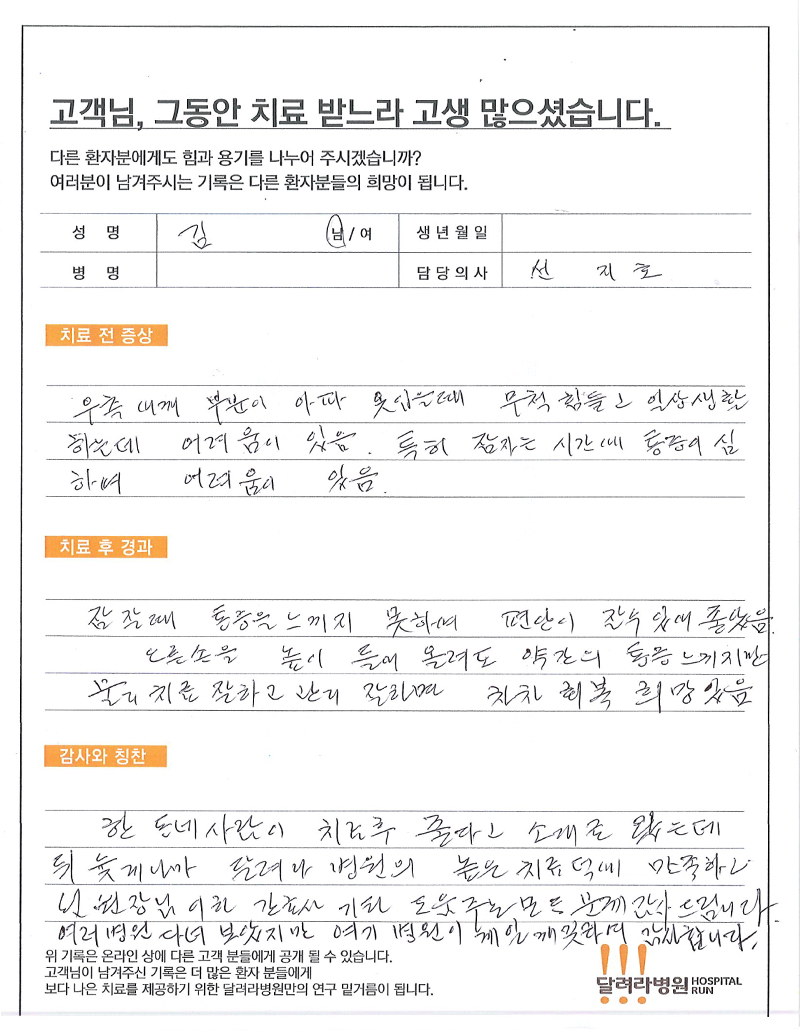 고객님, 그동안 치료 받느라 고생 많으셨습니다.
다른 환자분에게도 힘과 용기를 나누어 주시겠습니까?
여러분이 남겨주시는 기록은 다른 환자분들의 희망이 됩니다.
성 명 김 남/여 생년월일
병 명 담당의사 선 지 호
치료 전 증상
우측 어깨 부분이 아파 옷입을때 무척 힘들고 일상생활
하는데 어려움이 있음. 특히 잠자는 시간에 통증이 심
하며 어려움이 있음.
치료 후 경과
잠잘때 통증을 느끼지 못하며 편안이 잘수 있어 좋았음.
오른손을 높이 들어 올려도 약간의 통증 느끼지만
물리치료 잘하고 관리 잘하면 차차 회복 희망있음
감사와 칭찬
한 동네사람이 치료후 좋다고 소개로 왔는데
뒤늦게나마 달려라 병원의 높은 치료덕에 만족하고
원장님 이하 간호사 기타 도움주는 모든 분께 감사드립니다.
여러병원 다녀 보았지만 여기 병원이 제일 깨끗하며 감사합니다.
위 기록은 온라인 상에 다른 고객 분들에게 공개 될 수 있습니다.
고객님이 남겨주신 기록은 더 많은 환자 분들에게
보다 나은 치료를 제공하기 위한 달려라병원만의 연구 밑거름이 됩니다.
달려라병원 HOSPITAL RUN